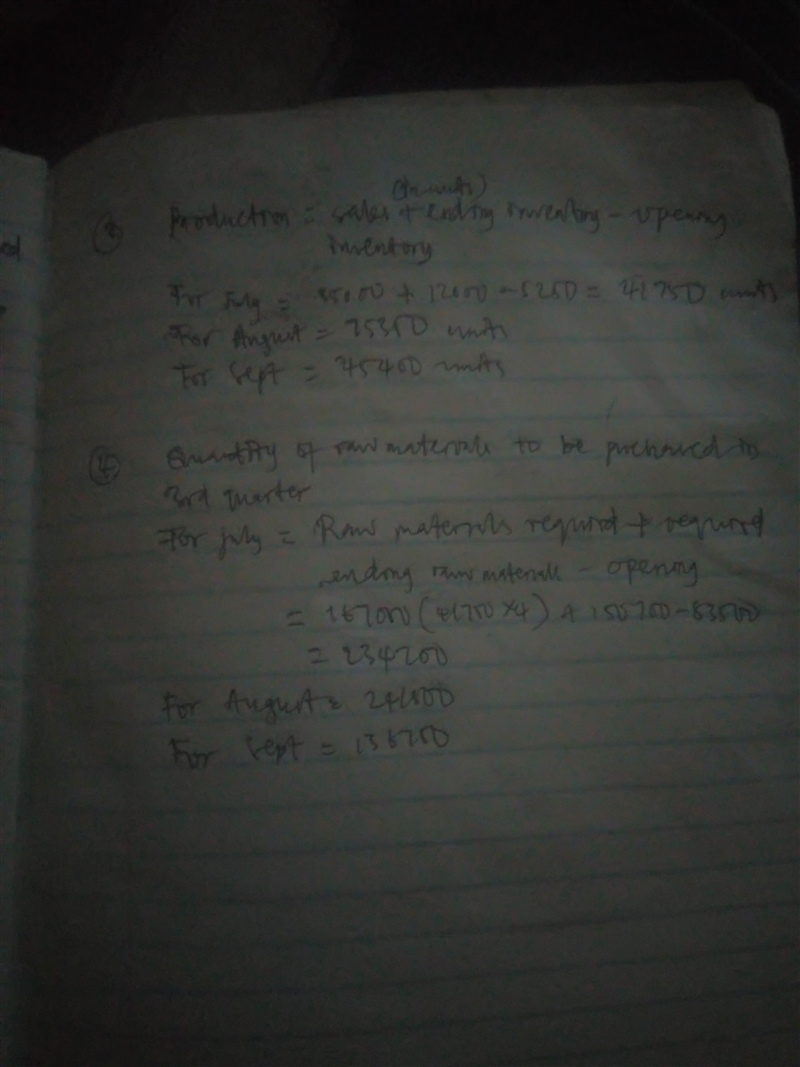 (in units)
③ Production = sales + ending inventory - opening
inventory
For July = 35000 + 12000 - 5250 = 41750 units
For August = units
For Sept = 45400 units
④ Quantity of raw materials to be purchased in
3rd quarter
For July = Raw materials required + required
ending raw materials - opening
= 167000 (41750 x 4) + - 83500
= 234200
For August =
For Sept =
nd